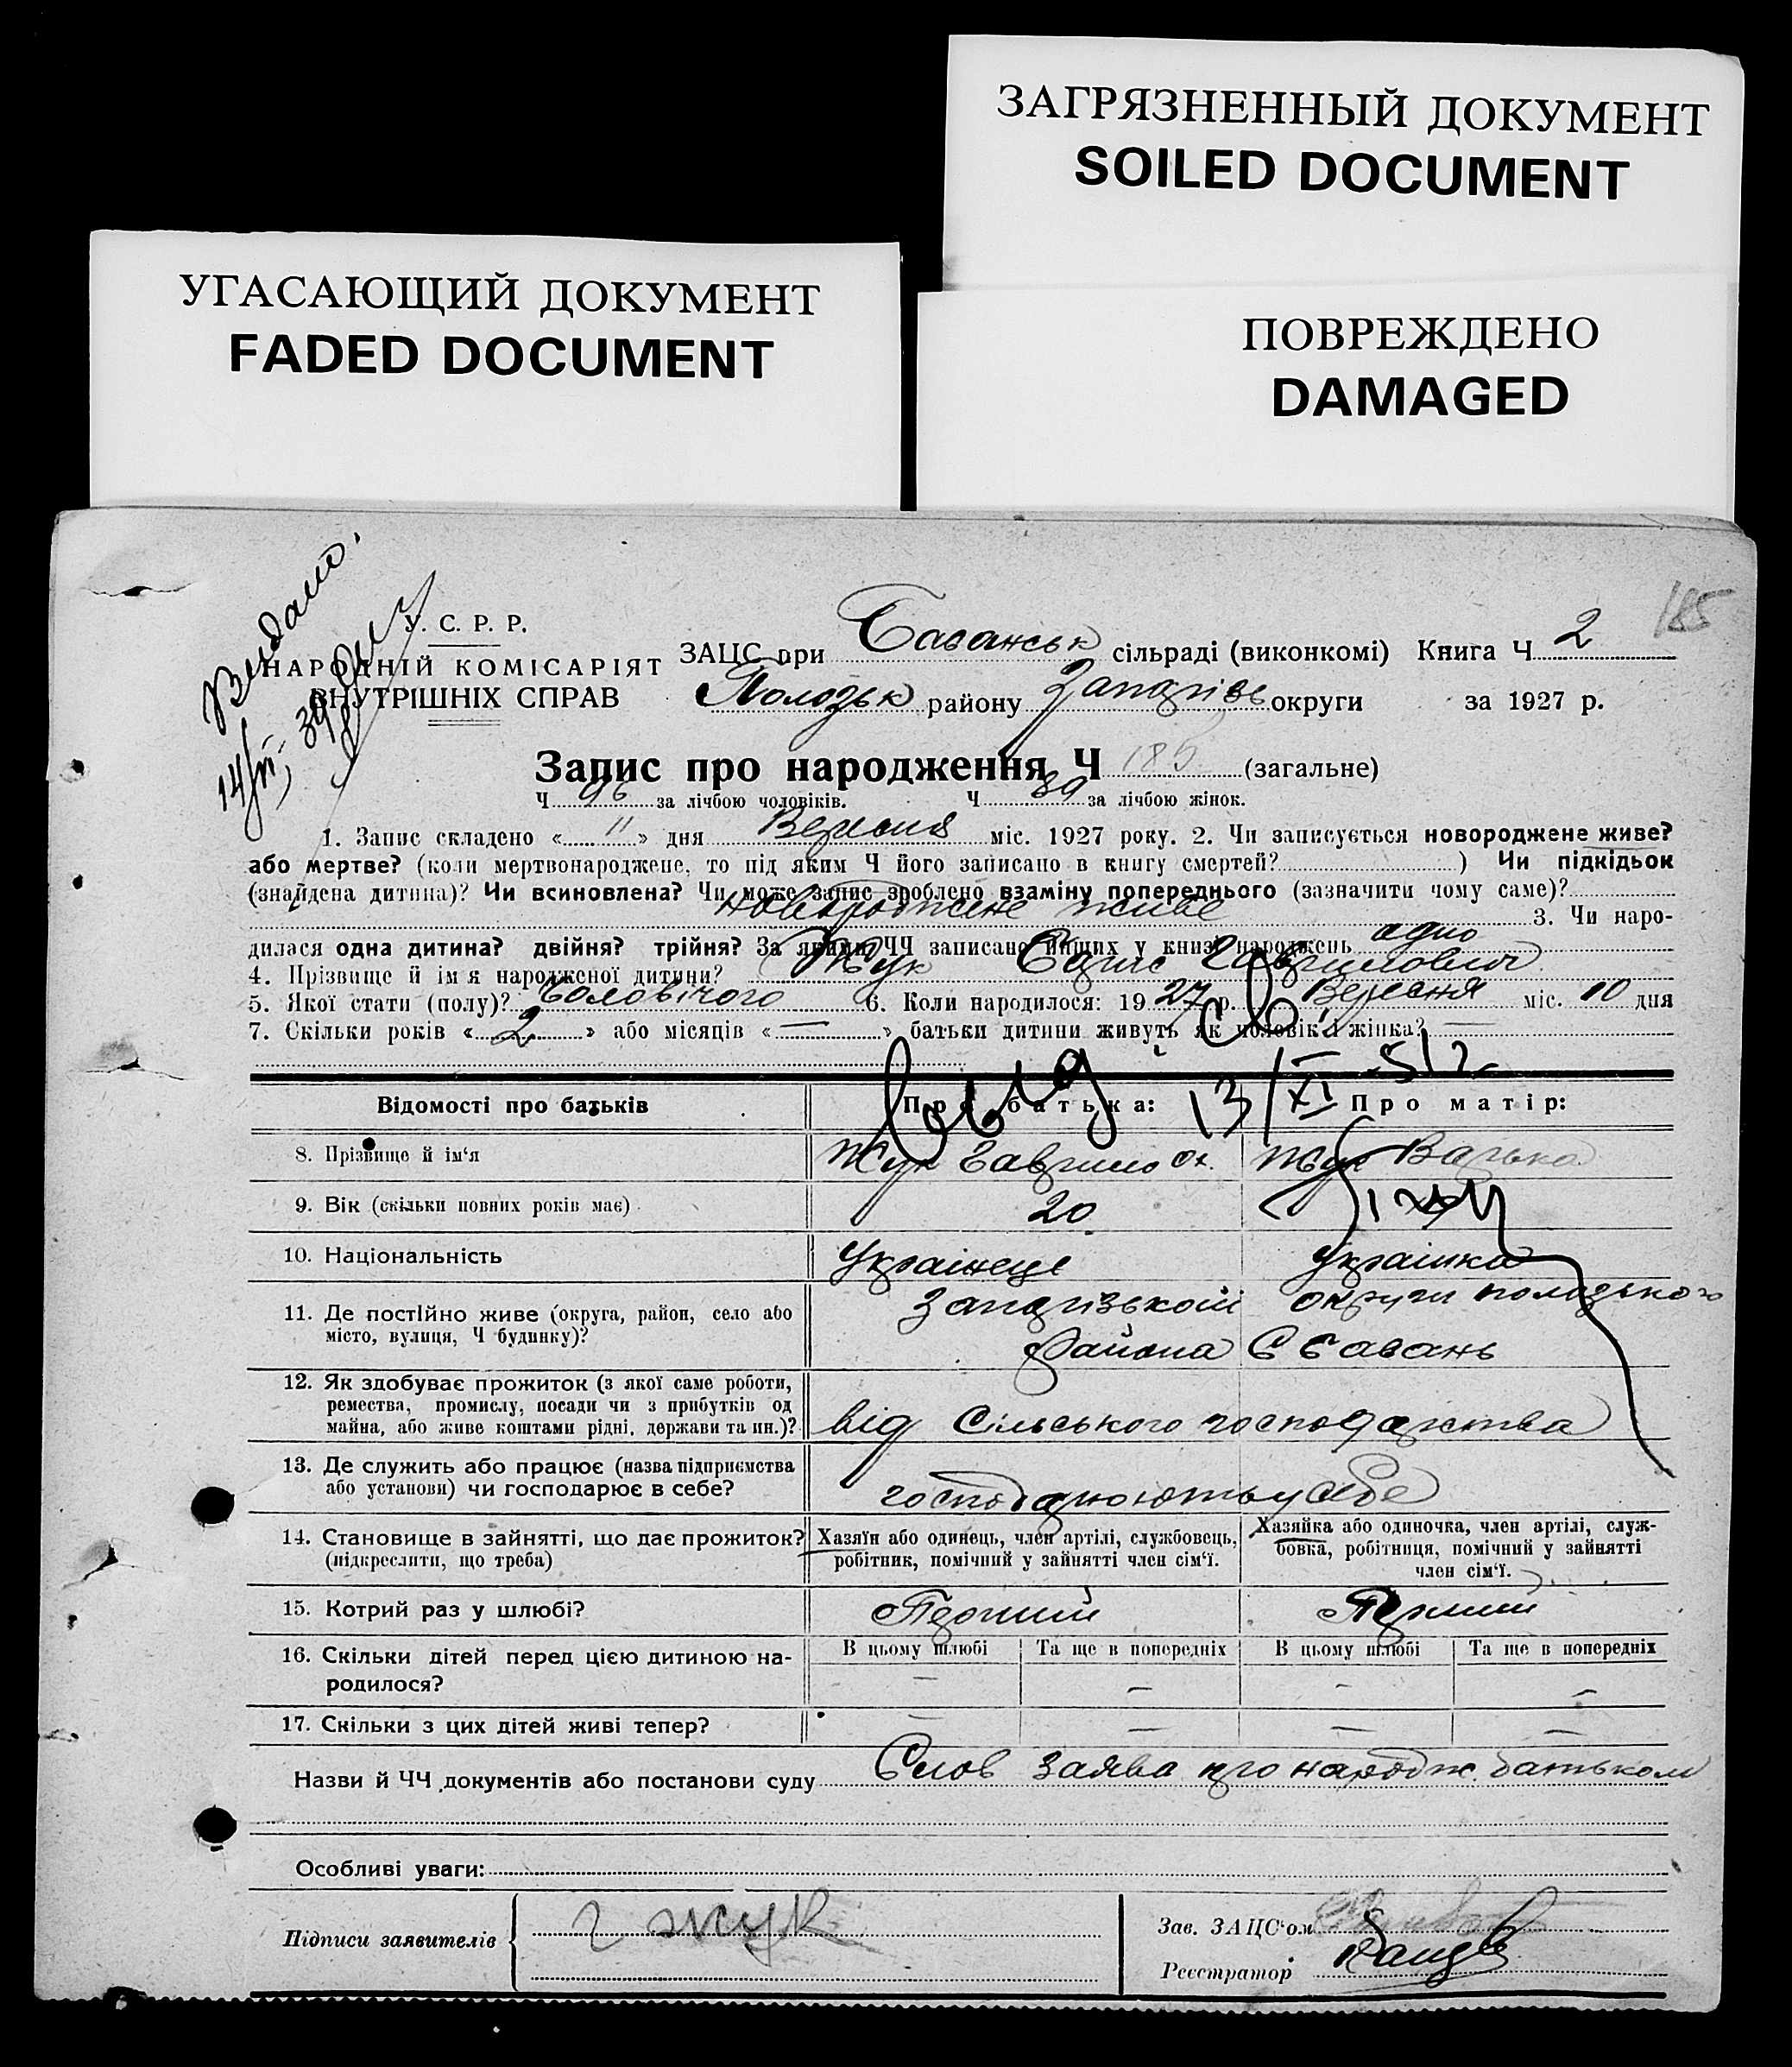 ЗАГРЯЗНЕННЫЙ ДОКУМЕНТ
SOILED DOCUMENT
УГАСАЮЩИЙ ДОКУМЕНТ
FADED DOCUMENT
ПОВРЕЖДЕНО
DAMAGED
185
У. С. Р. Р.
НАРОДНІЙ КОМІСАРІЯТ
ВНУТРІШНІХ СПРАВ
ЗАЦС при сільраді (виконкомі) Книга Ч 2
району округи за 1927 р.
Запис про народження Ч 185 (загальне)
Ч 96 за лічбою чоловіків. Ч 89 за лічбою жінок.
1. Запис складено « 11 » дня Вересня міс. 1927 року. 2. Чи записується новороджене живе?
або мертве? (коли мертвонароджене, то під яким Ч його записано в книгу смертей? ) Чи підкідьок
(знайдена дитина)? Чи всиновлена? Чи може запис зроблено взаміну попереднього (зазначити чому саме)?
новороджене живе 3. Чи наро-
дилася одна дитина? двійня? трійня? За якими ЧЧ записано инших у книзі народжень одно
4. Прізвище й ім'я народженої дитини? Жук Гаврилович
5. Якої стати (полу)? Чоловічого 6. Коли народилося: 1927 р. Вересня міс. 10 дня
7. Скільки років « 2 » або місяців « — » батьки дитини живуть як чоловік і жінка? —
Відомості про батьків Про батька: Про матір:
13/XI-51 г.
8. Прізвище й ім'я Жук Гаврило Ох. Жук Варька
9. Вік (скільки повних років має) 20
10. Національність Українець Українка
11. Де постійно живе (округа, район, село або
місто, вулиця, Ч будинку)?
Запорізької округи Полозького
района
12. Як здобуває прожиток (з якої саме роботи,
ремества, промислу, посади чи з прибутків од
майна, або живе коштами рідні, держави та ин.)? від Сільського господарства
13. Де служить або працює (назва підприємства
або установи) чи господарює в себе? господарюють у себе
14. Становище в зайнятті, що дає прожиток?
(підкреслити, що треба)
Хазяїн або одинець, член артілі, службовець,
робітник, помічний у зайнятті член сім'ї.
Хазяйка або одиночка, член артілі, служ-
бовка, робітниця, помічний у зайнятті
член сім'ї.
15. Котрий раз у шлюбі? Перший Перший
16. Скільки дітей перед цією дитиною на-
родилося?
В цьому шлюбі Та ще в попередніх В цьому шлюбі Та ще в попередніх
— — — —
17. Скільки з цих дітей живі тепер? — — — —
Назви й ЧЧ документів або постанови суду Слов заява про народж. батьком
Особливі уваги:
Підписи заявителів Г Жук
Зав. ЗАЦС'ом
Реєстратор